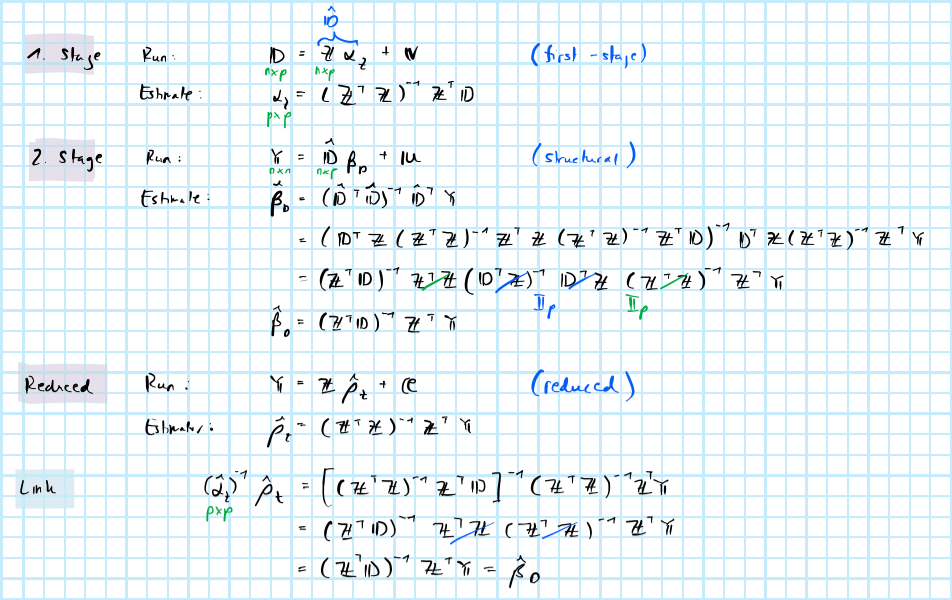 D̂
1. Stage Run: 𝔻 = ℤ α_z + 𝕍 (first-stage)
n×p n×p
Estimate: α_z = (ℤᵀ ℤ)⁻¹ ℤᵀ 𝔻
p×p
2. Stage Run: 𝕐 = 𝔻̂ β_D + 𝕌 (structural)
n×n n×p
Estimate: β̂_D = (𝔻̂ᵀ 𝔻̂)⁻¹ 𝔻̂ᵀ 𝕐
= (𝔻ᵀ ℤ (ℤᵀ ℤ)⁻¹ ℤᵀ ℤ (ℤᵀ ℤ)⁻¹ ℤᵀ 𝔻)⁻¹ 𝔻ᵀ ℤ (ℤᵀ ℤ)⁻¹ ℤᵀ 𝕐
= (ℤᵀ 𝔻)⁻¹ ℤᵀ ℤ (𝔻ᵀ ℤ)⁻¹ 𝔻ᵀ ℤ (ℤᵀ ℤ)⁻¹ ℤᵀ 𝕐
𝕀_p 𝕀_p
β̂_D = (ℤᵀ 𝔻)⁻¹ ℤᵀ 𝕐
Reduced Run: 𝕐 = ℤ ρ̂_z + 𝕖 (reduced)
Estimator: ρ̂_z = (ℤᵀ ℤ)⁻¹ ℤᵀ 𝕐
Link (α̂_z)⁻¹ ρ̂_z = [(ℤᵀ ℤ)⁻¹ ℤᵀ 𝔻]⁻¹ (ℤᵀ ℤ)⁻¹ ℤᵀ 𝕐
p×p
= (ℤᵀ 𝔻)⁻¹ ℤᵀ ℤ (ℤᵀ ℤ)⁻¹ ℤᵀ 𝕐
= (ℤᵀ 𝔻)⁻¹ ℤᵀ 𝕐 = β̂_D